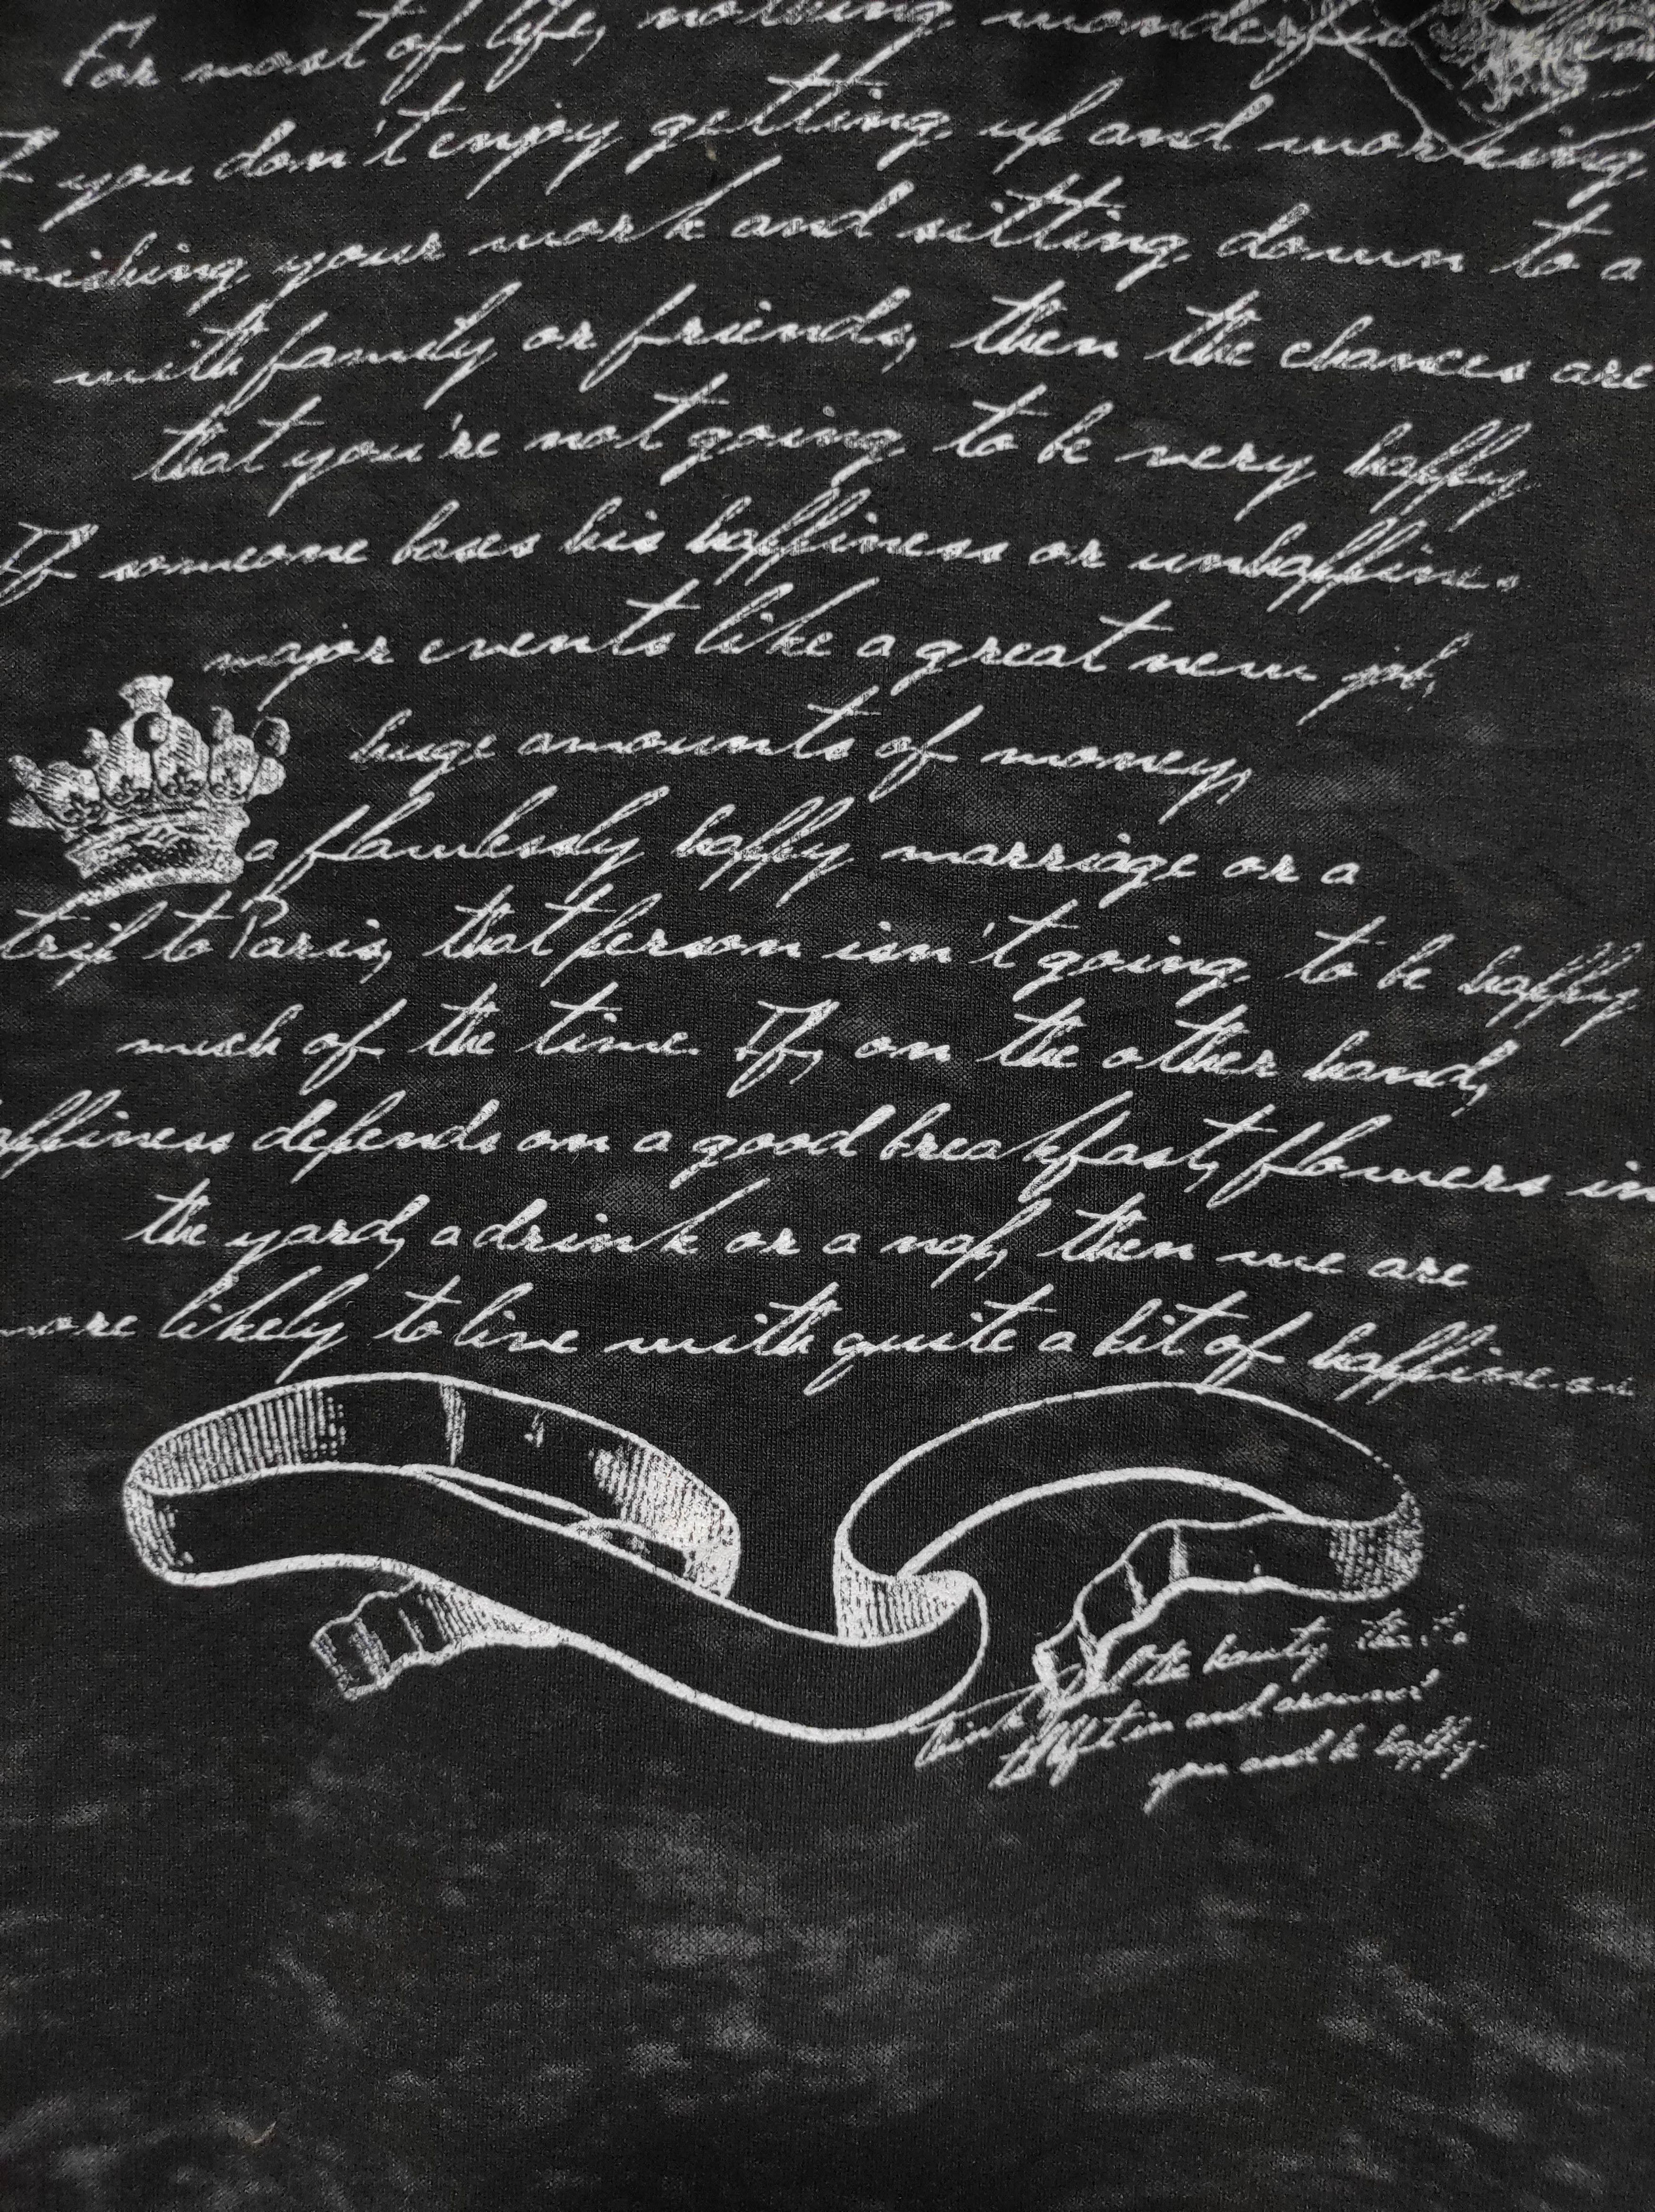 For most of life, nothing wonderful
If you don't enjoy getting up and working
your work and sitting down to a
with family or friends, then the chances are
that you're not going to be very happy
If someone bases his happiness or unhappiness
major events like a great new job,
huge amounts of money,
a flawlessly happy marriage or a
trip to Paris, that person isn't going to be happy
much of the time. If, on the other hand,
depends on a good breakfast, flowers in
the yard, a drink or a nap, then we are
more likely to live with quite a bit of happiness
the beauty
in and around
you and be happy